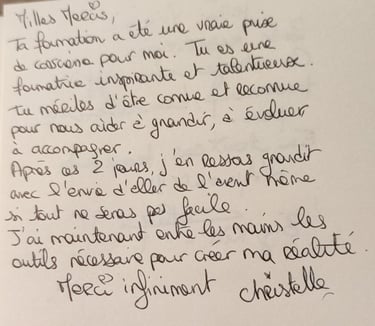 Milles Mercis,
Ta formation a été une vraie prise
de conscience pour moi. Tu es une
formatrice inspirante et talentueuse.
Tu mérites d'être connue et reconnue
pour nous aider à grandir, à évoluer
à accompagner.
Après ces 2 jours, j'en ressors grandit
avec l'envie d'aller de l'avent même
si tout ne seras pas facile.
J'ai maintenant entre les mains les
outils nécessaire pour créer ma réalité.
Merci infiniment Christelle